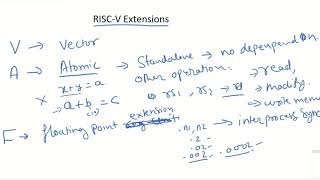 RISC-V Extensions
V → Vector
A → Atomic → Standalone → no depend on
other operation.
x+y=a
x → a+b=c
rs1, rs2 → rd → read,
modify.
write mem
→ interprocess sync
F → floating point extension.
n1, n2
.2-
.02-
.002- .0002-